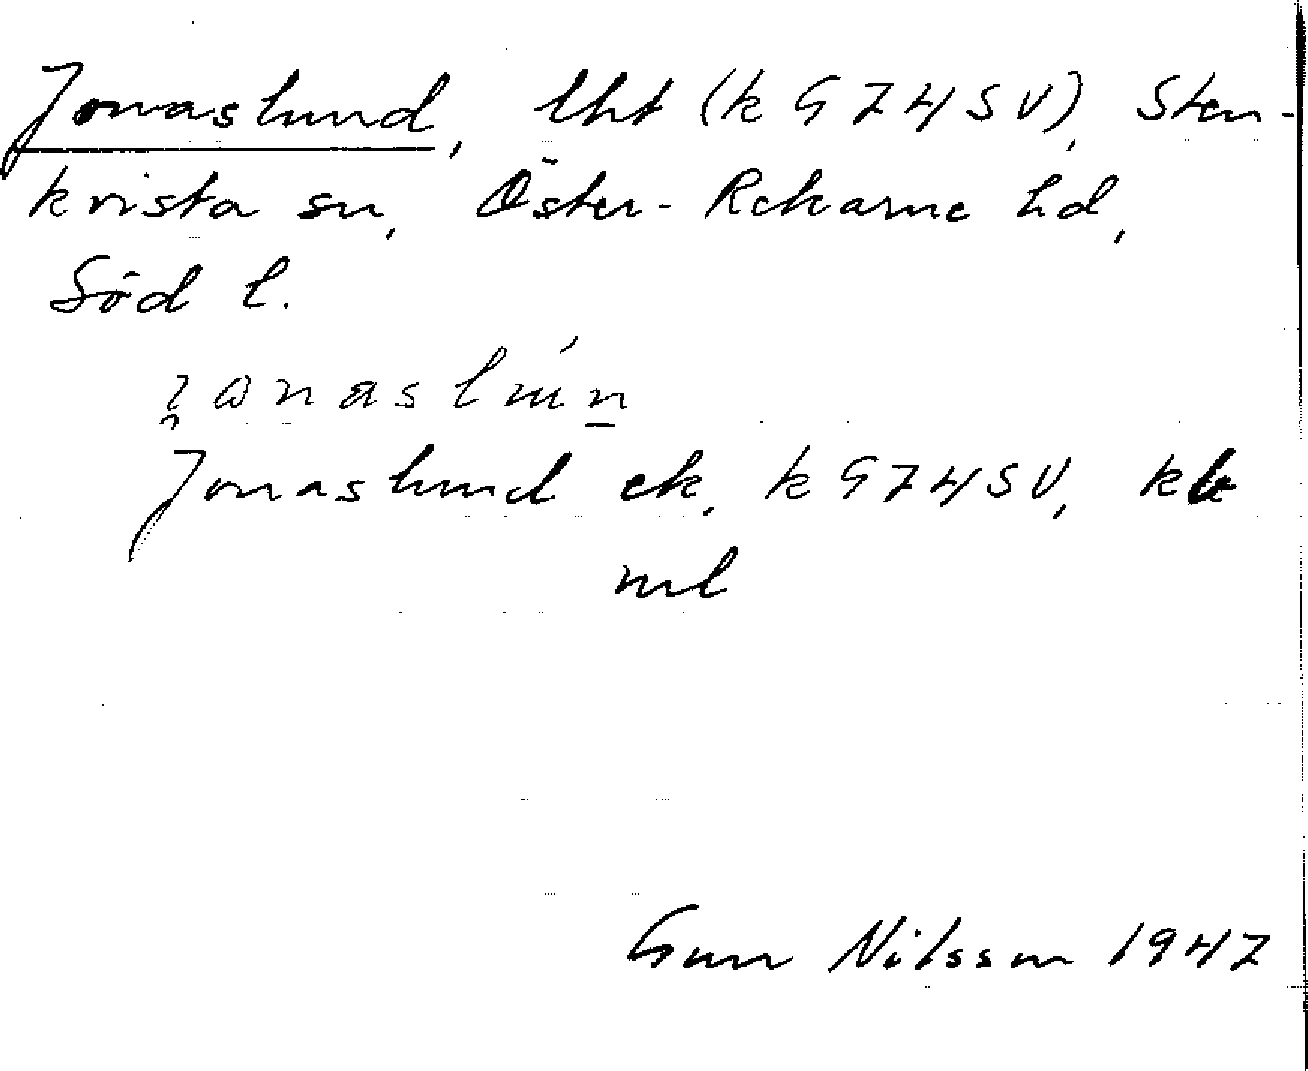 Jonaslund, lht (k G74SV), Sten-
krista sn, Öster-Rekarne hd,
Söd l.
Jonaslund ek, k G74SV,
Gun Nilsson 1947